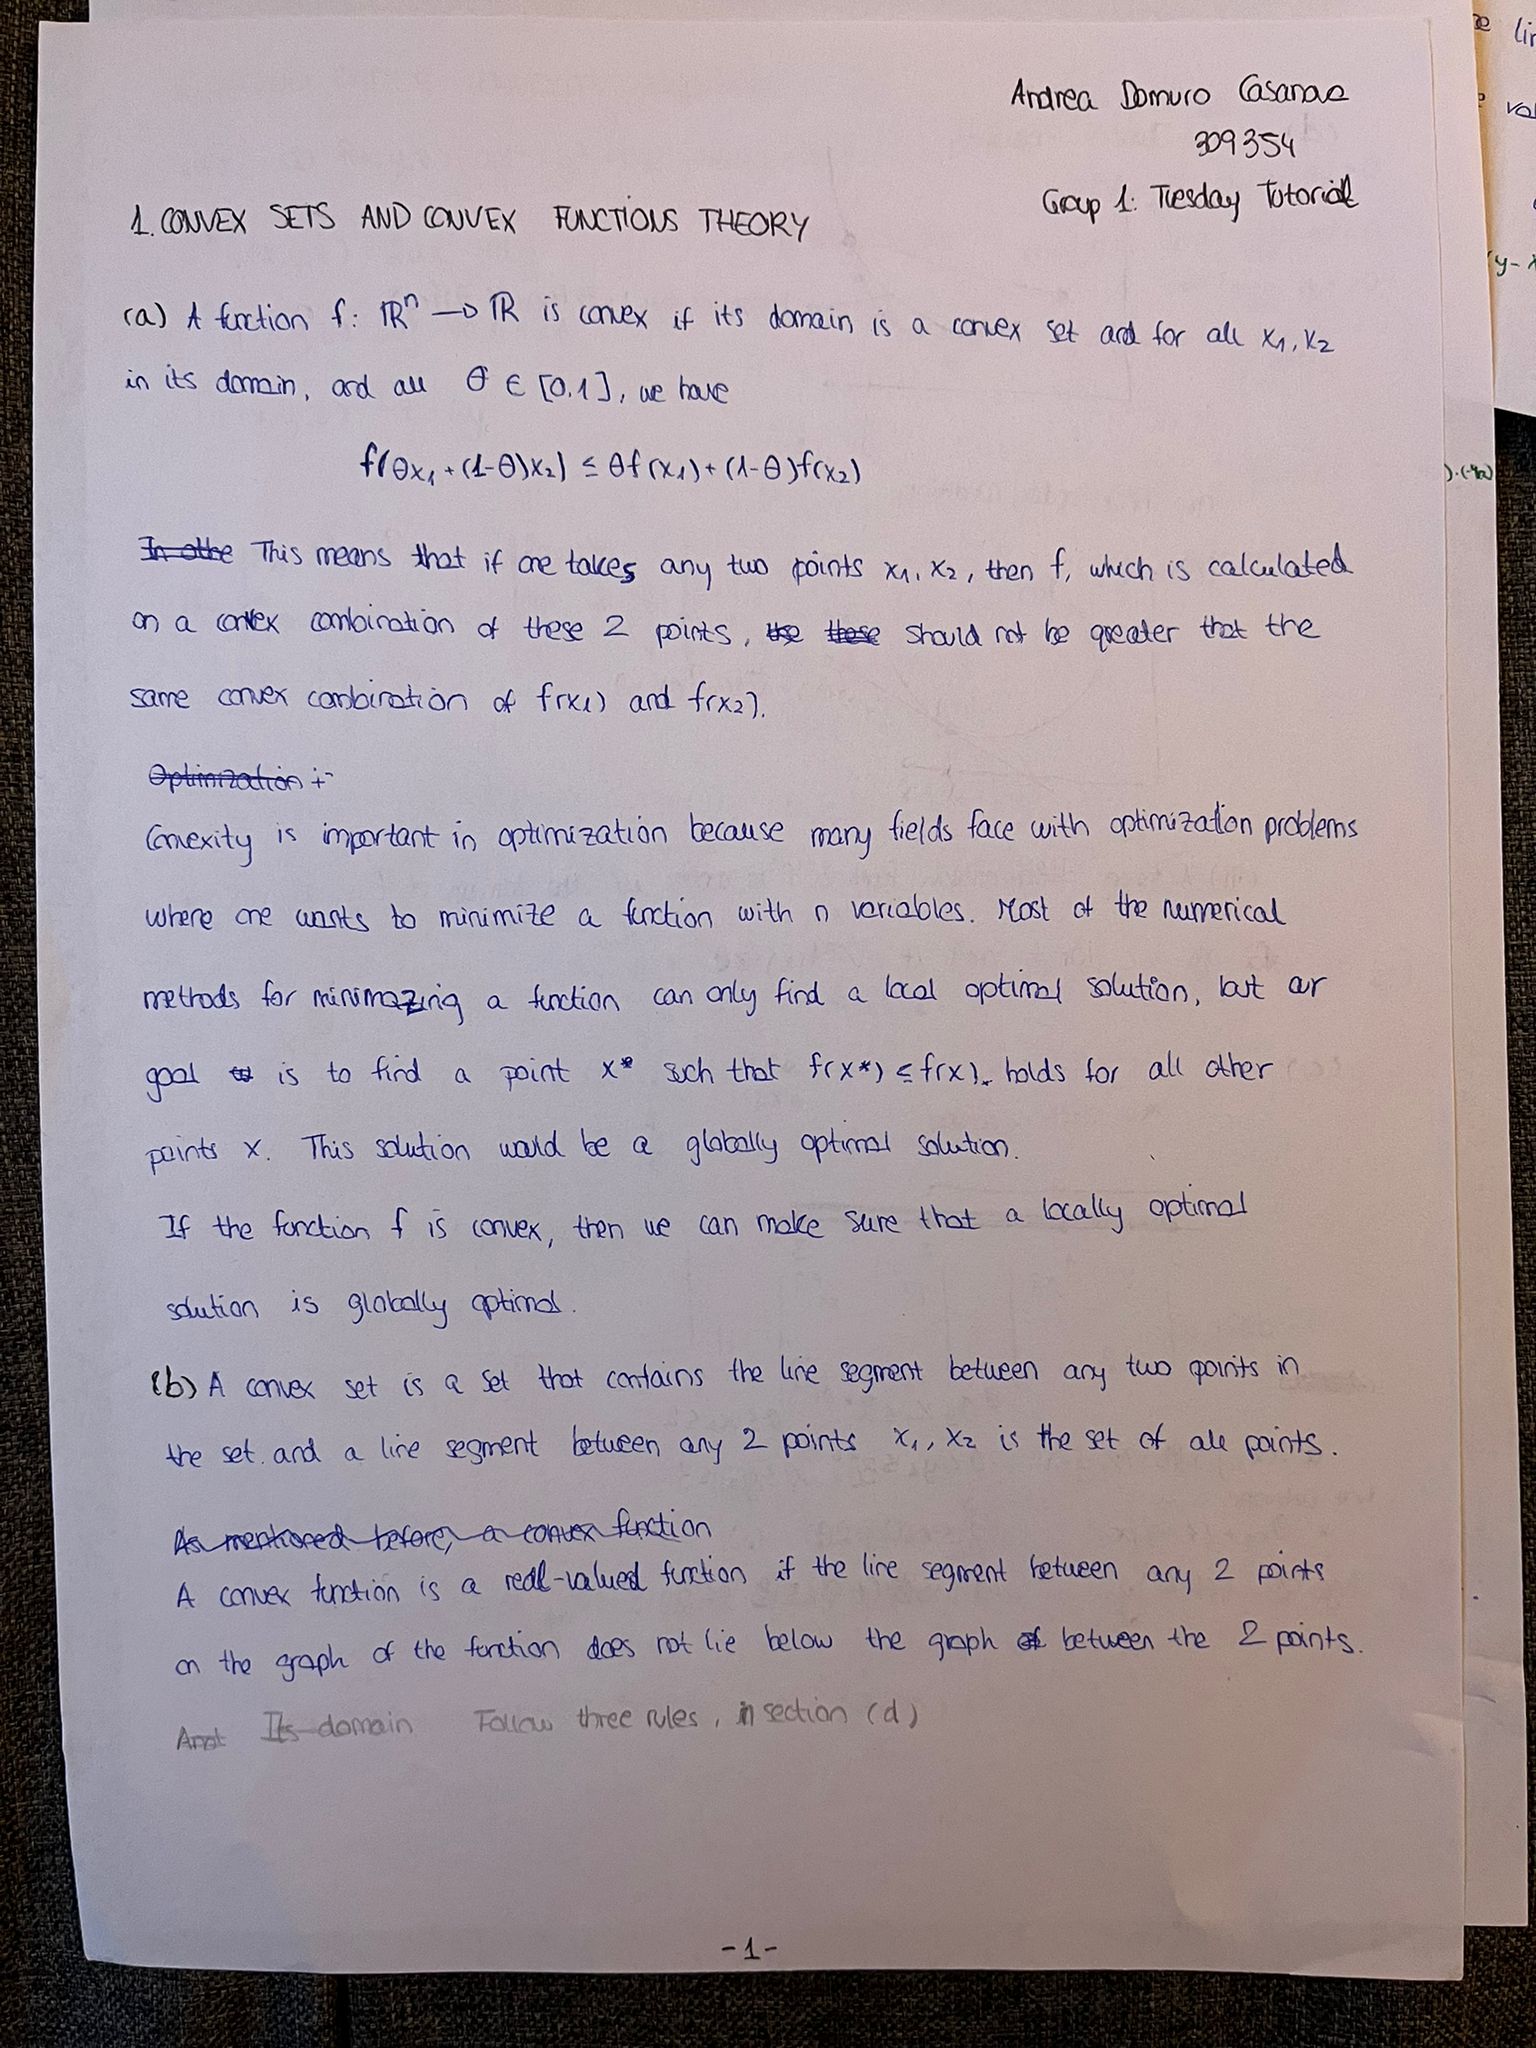 Andrea Domuro Casanas
309354
Group 1: Tuesday Tutorial
1. CONVEX SETS AND CONVEX FUNCTIONS THEORY
(a) A function f: ℝⁿ → ℝ is convex if its domain is a convex set and for all x₁, x₂
in its domain, and all θ ∈ [0,1], we have
f(θx₁ + (1-θ)x₂) ≤ θf(x₁) + (1-θ)f(x₂)
In othe This means that if one takes any two points x₁, x₂, then f, which is calculated
on a convex combination of these 2 points, the these should not be greater that the
same convex combination of f(x₁) and f(x₂).
Optimization i
Convexity is important in optimization because many fields face with optimization problems
where one wants to minimize a function with n variables. Most of the numerical
methods for minimazing a function can only find a local optimal solution, but our
goal is to find a point x* such that f(x*) ≤ f(x). holds for all other
points x. This solution would be a globally optimal solution.
If the function f is convex, then we can make sure that a locally optimal
solution is globally optimal.
(b) A convex set is a set that contains the line segment between any two points in
the set. and a line segment between any 2 points x₁, x₂ is the set of all points.
As mentioned before, a convex function
A convex function is a real-valued function if the line segment between any 2 points
on the graph of the function does not lie below the graph of between the 2 points.
And Its domain Follow three rules, in section (d)
-1-